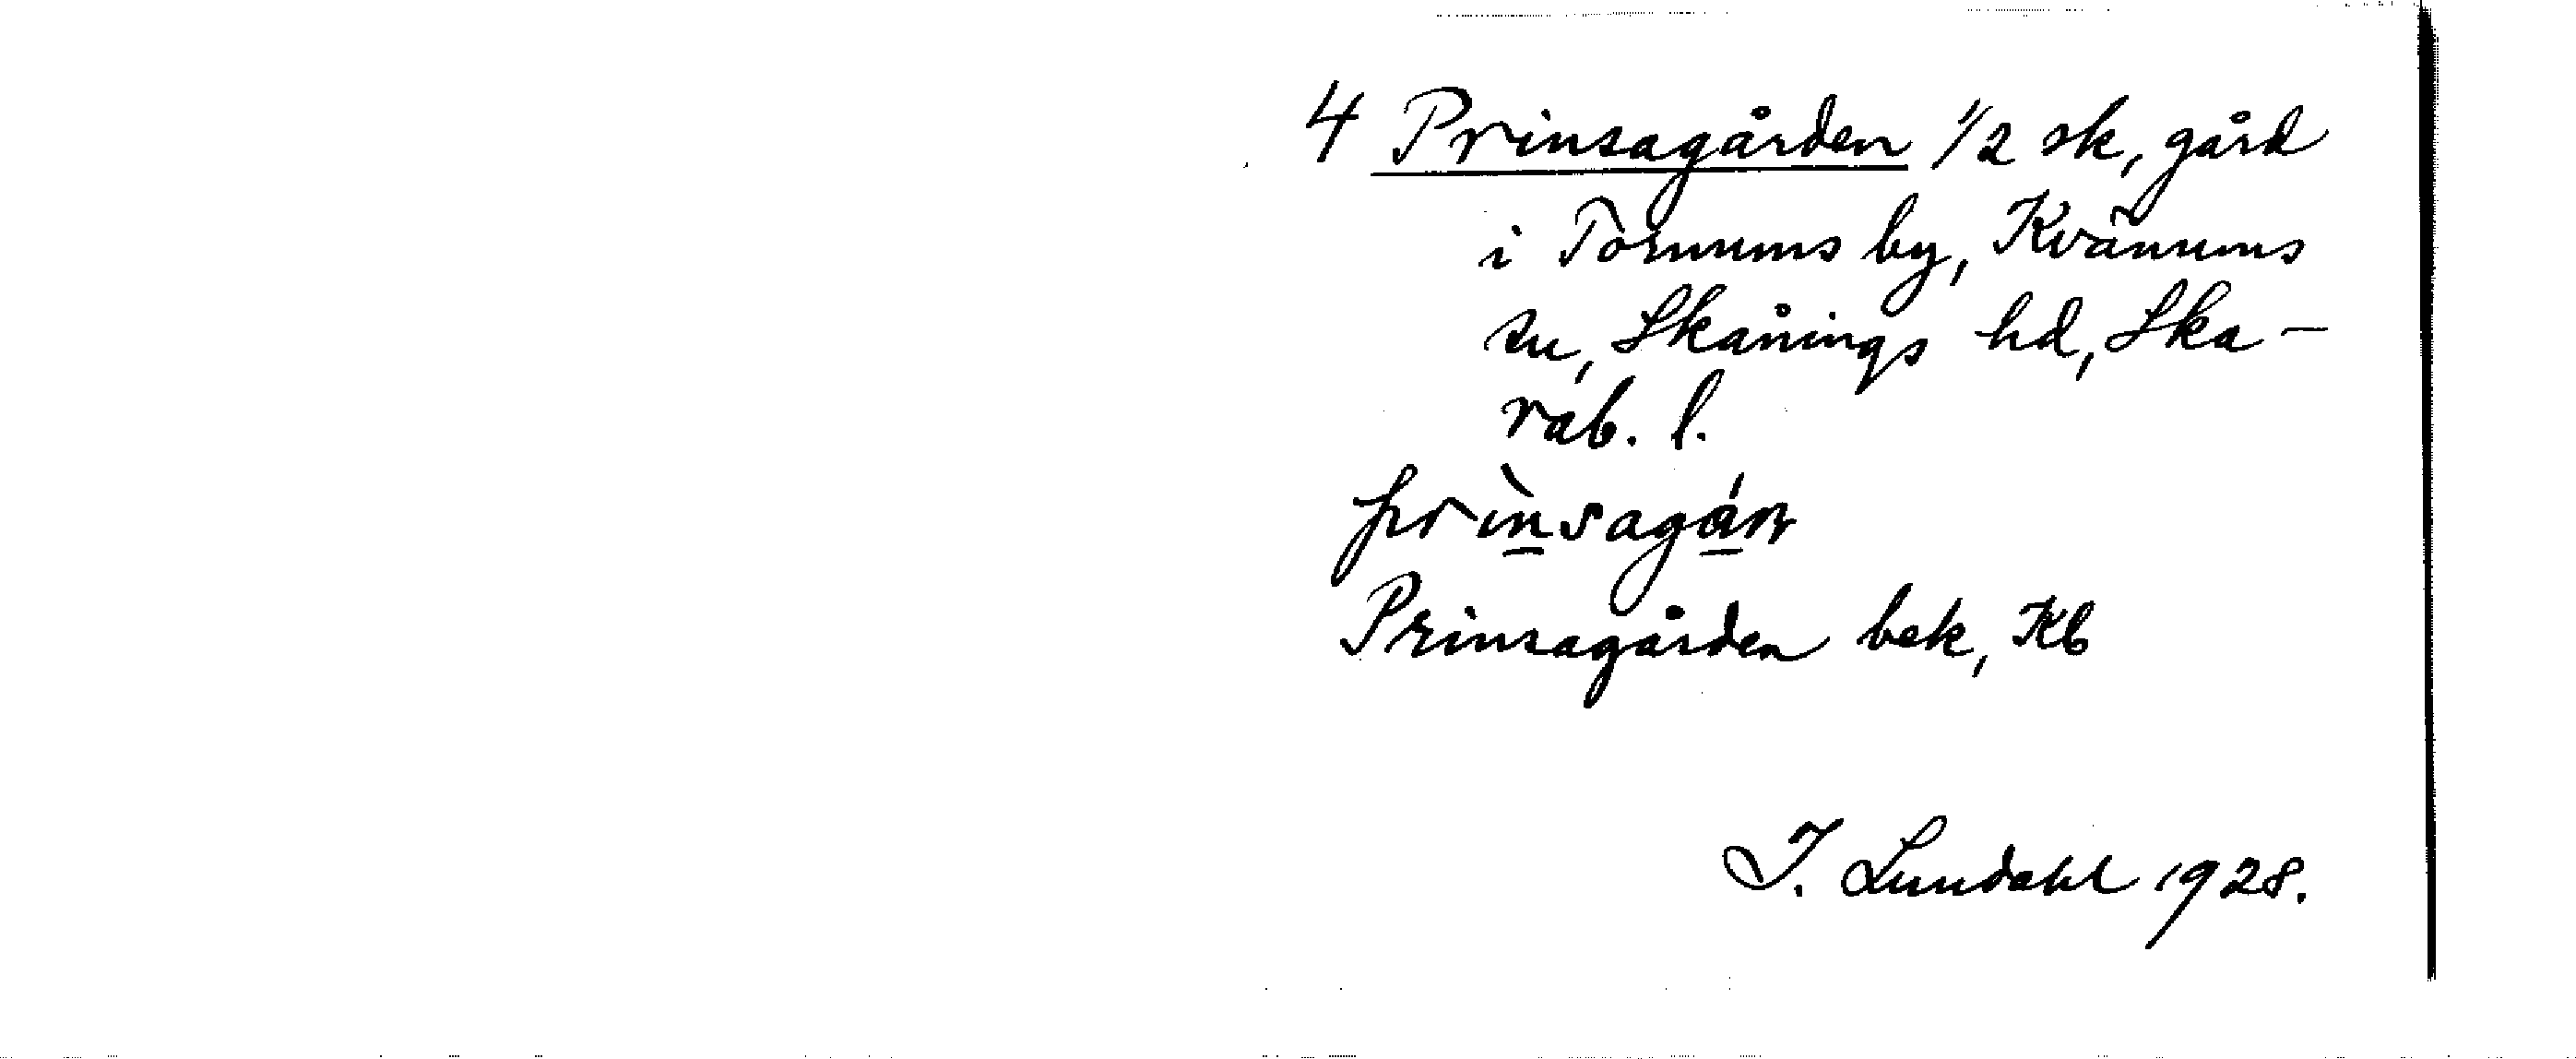 4 Prinsagården 1/2 sk, gård
i Tornums by, Kvänums
sn, Skånings hd, Ska-
rab. l.
prìnsagán
Prinsagården bek, Kb
I. Lundahl 1928.